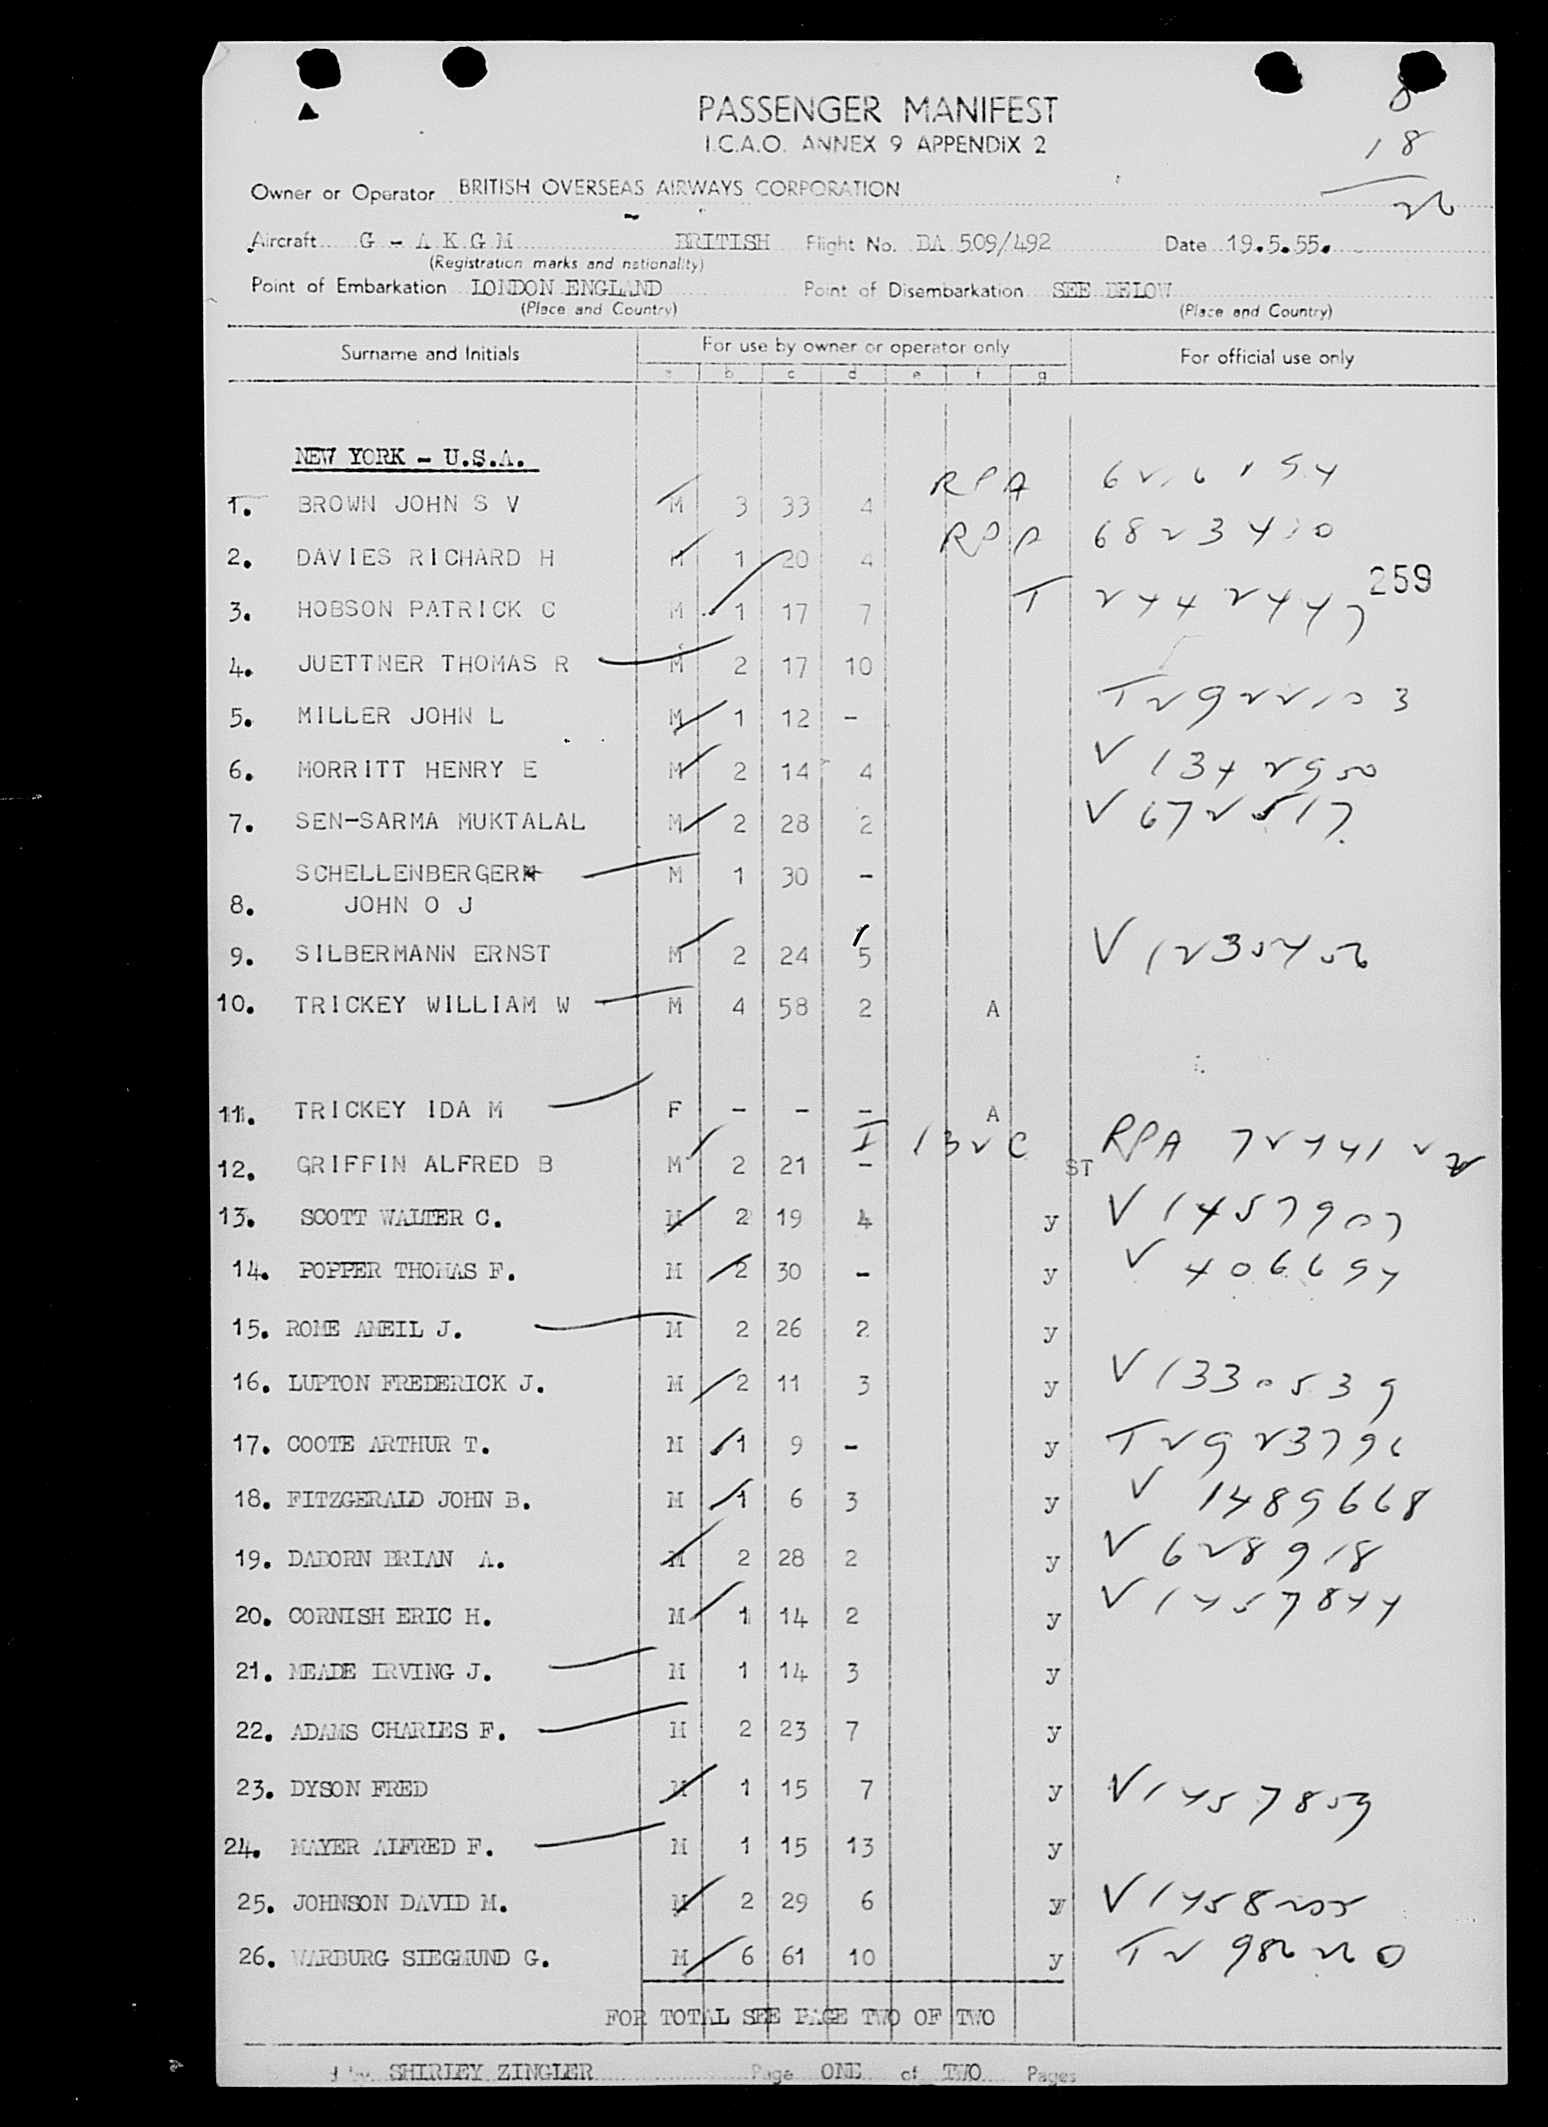 8
PASSENGER MANIFEST
I.C.A.O. ANNEX 9 APPENDIX 2
18
26
Owner or Operator BRITISH OVERSEAS AIRWAYS CORPORATION
Aircraft G - A K G M BRITISH Flight No. BA 509/492 Date 19.5.55.
(Registration marks and nationality)
Point of Embarkation LONDON ENGLAND Point of Disembarkation SEE BELOW
(Place and Country) (Place and Country)
Surname and Initials For use by owner or operator only For official use only
a b c d e f g
NEW YORK - U.S.A.
1. BROWN JOHN S V M 3 33 4 RPA
2. DAVIES RICHARD H M 1 20 4 RPA 6823410
259
3. HOBSON PATRICK C M 1 17 7 T 2442447
4. JUETTNER THOMAS R M 2 17 10
5. MILLER JOHN L M 1 12 - T2922103
6. MORRITT HENRY E M 2 14 4 V 1342950
7. SEN-SARMA MUKTALAL M 2 28 2 V 672517
SCHELLENBERGER M 1 30 -
8. JOHN O J
9. SILBERMANN ERNST M 2 24 5 V 1235456
10. TRICKEY WILLIAM W M 4 58 2 A
11. TRICKEY IDA M F - - - A
12. GRIFFIN ALFRED B M 2 21 - I 132C ST RPA
13. SCOTT WALTER C. M 2 19 4 y V 1457907
14. POPPER THOMAS F. M 2 30 - y V 406694
15. ROME AMEIL J. M 2 26 2 y
16. LUPTON FREDERICK J. M 2 11 3 y V 1330539
17. COOTE ARTHUR T. M 1 9 - y T2923796
18. FITZGERALD JOHN B. M 1 6 3 y V 1489668
19. DABORN BRIAN A. M 2 28 2 y V 628918
20. CORNISH ERIC H. M 1 14 2 y V 1457844
21. MEADE IRVING J. M 1 14 3 y
22. ADAMS CHARLES F. M 2 23 7 y
23. DYSON FRED M 1 15 7 y V 1457853
24. MAYER ALFRED F. M 1 15 13 y
25. JOHNSON DAVID M. M 2 29 6 y V 1458255
26. WARBURG SIEGMUND G. M 6 61 10 y T2986260
FOR TOTAL SEE PAGE TWO OF TWO
by SHIRLEY ZINGLER Page ONE of TWO Pages